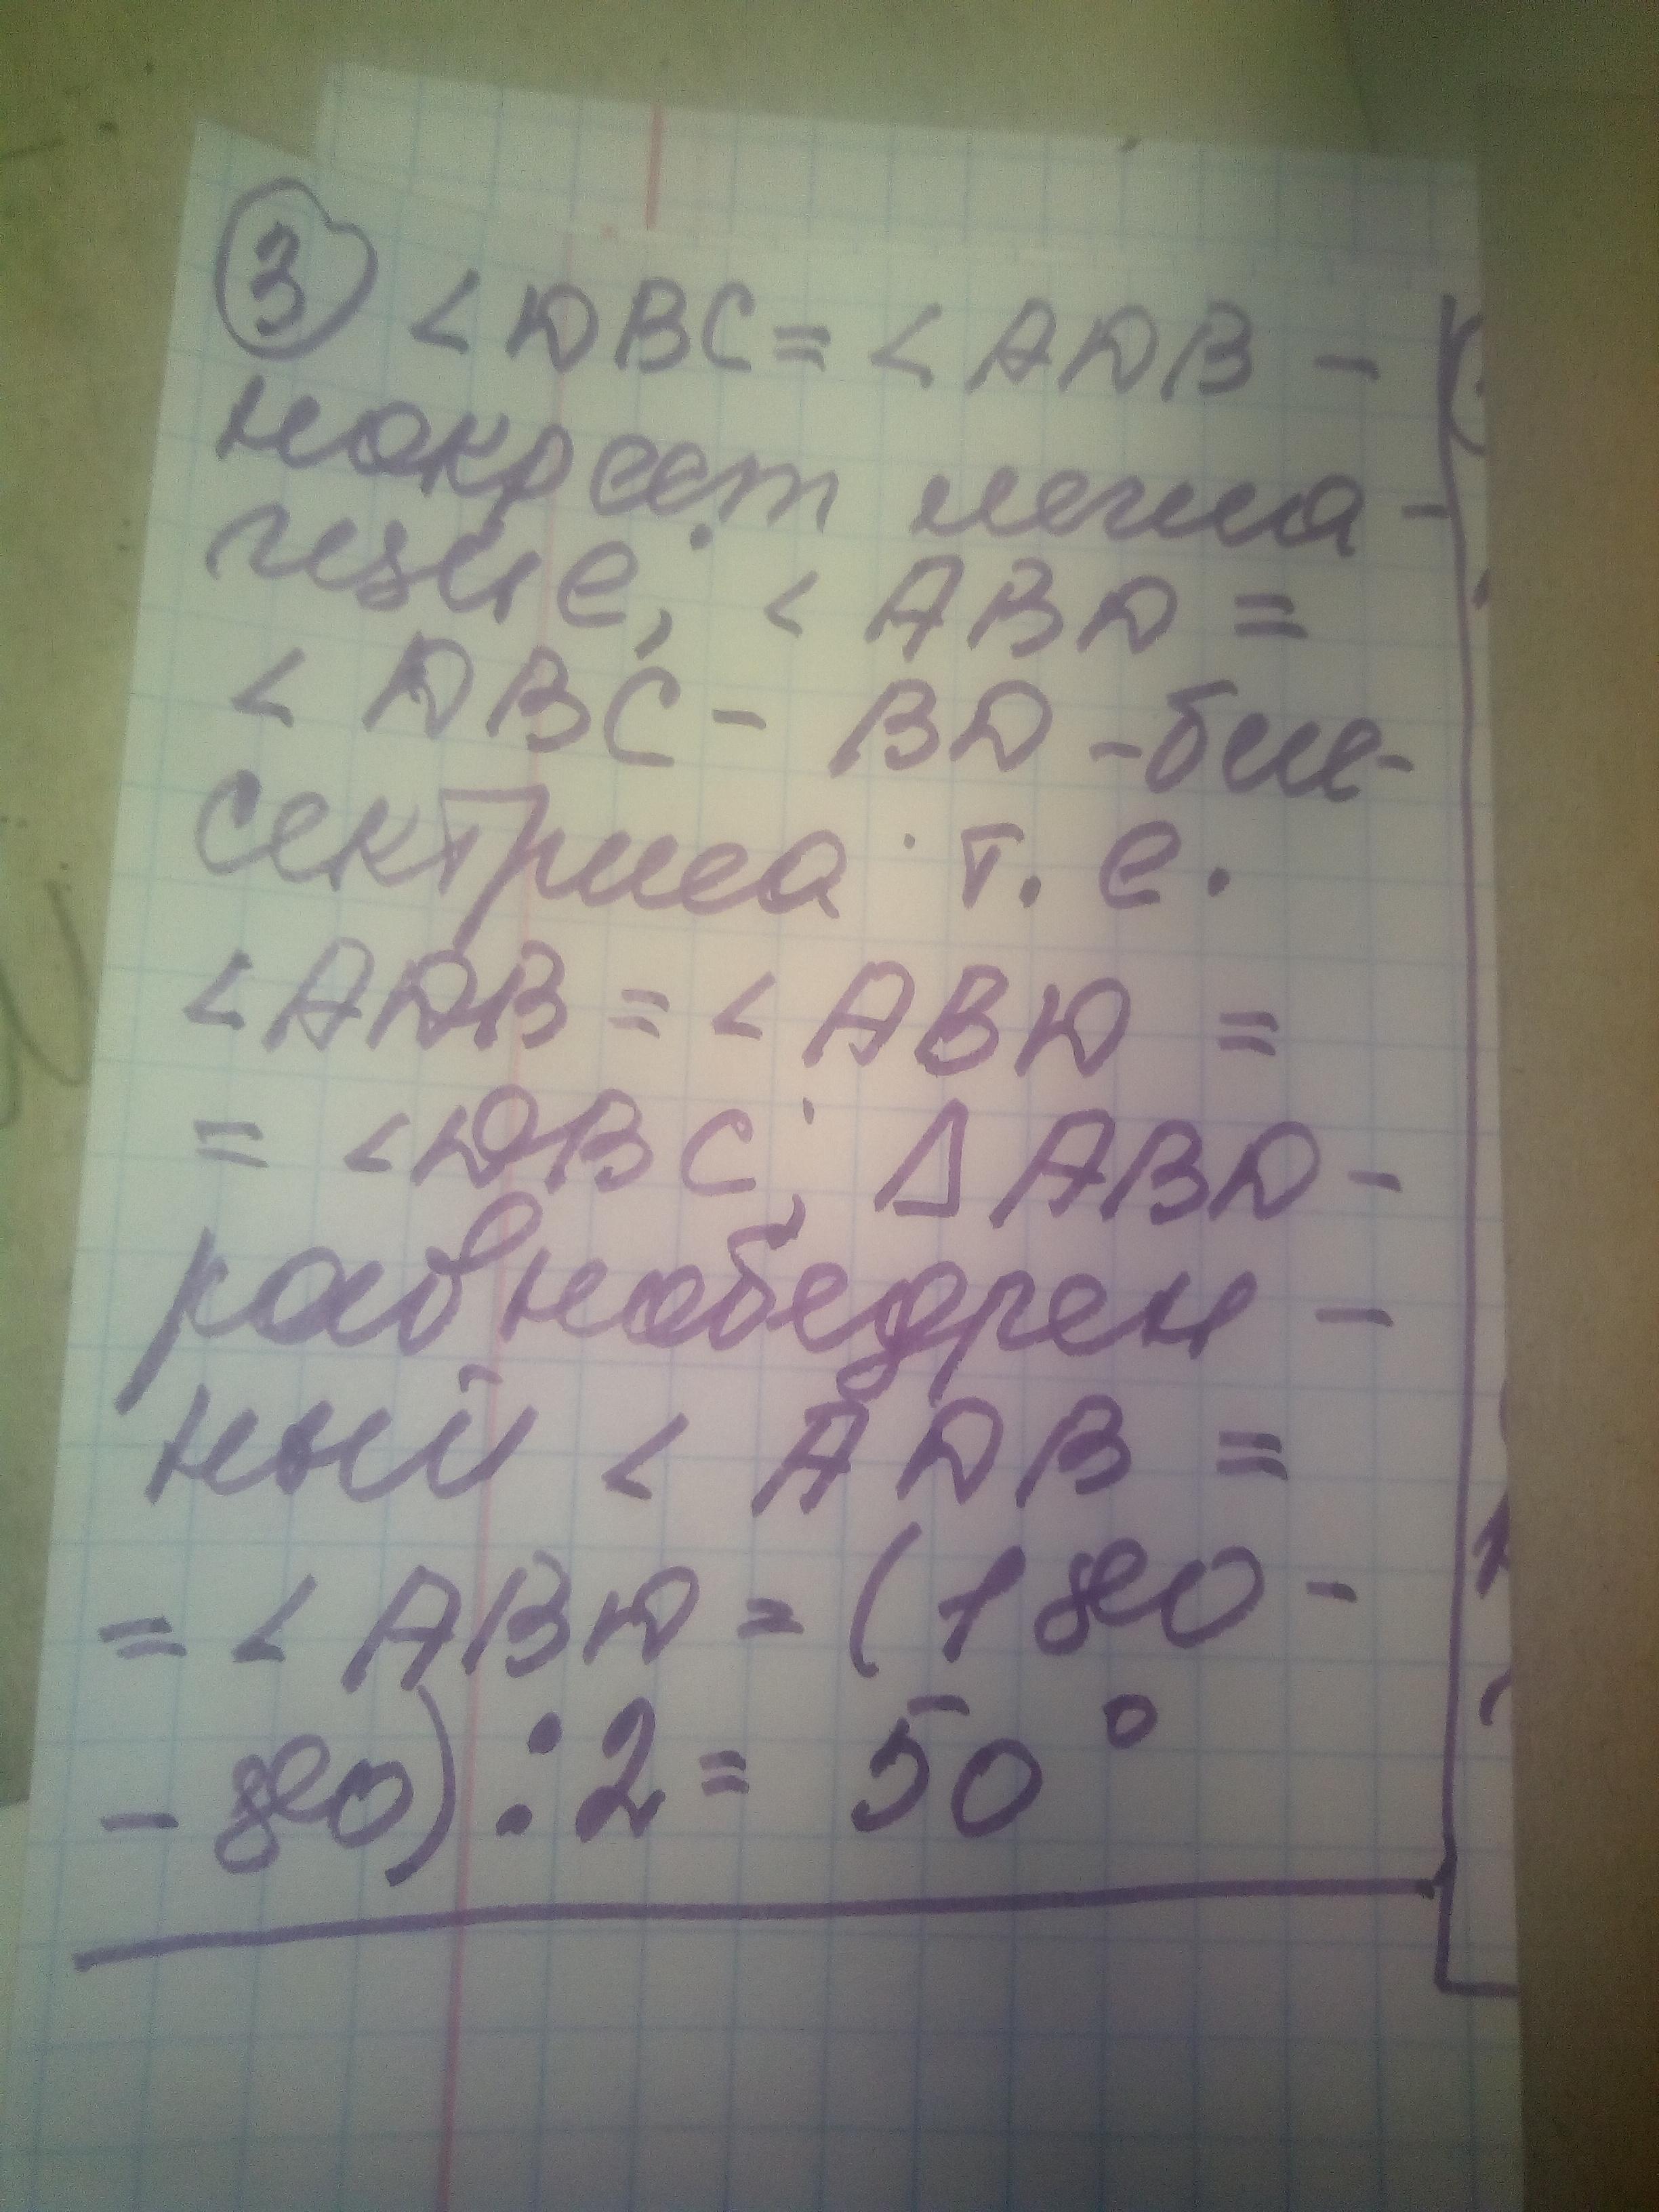 ③ <DBC = <ADB -
накрест лежа-
щие; <ABD =
<DBC - BD - бис-
сектриса т. е.
<ADB = <ABD =
= <DBC; ΔABD -
равнобедрен-
ный <ADB =
= <ABD = (180 -
- 80) : 2 = 50°